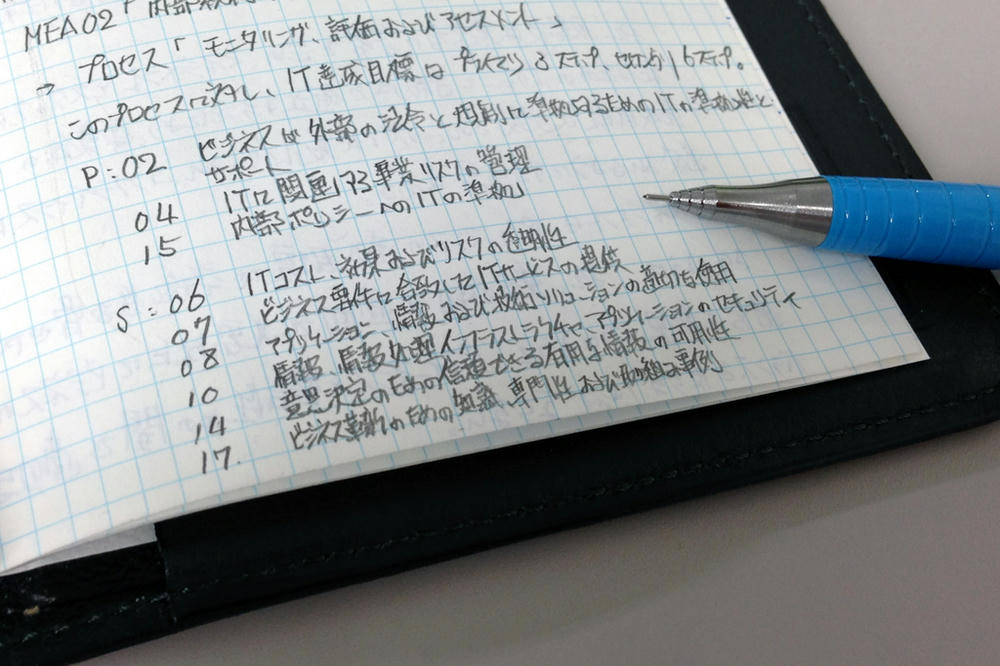 MEA02「内部
→ プロセス「モニタリング、評価およびアセスメント」
このプロセスに対し、IT達成目標はプライマリ3ステップ、セカンダリ6ステップ。
P:02 ビジネスが外部の法令と規制に準拠するためのITの準拠性と
サポート
04 ITに関連する事業リスクの管理
15 内部ポリシーへのITの準拠
S:06 ITコスト、効果およびリスクの透明性
07 ビジネス要件に合致したITサービスの提供
08 アプリケーション、情報および技術ソリューションの適切な使用
10 情報、情報処理インフラストラクチャ、アプリケーションのセキュリティ
14 意思決定のための信頼できる有用な情報の可用性
17. ビジネス革新のための知識、専門性および取り組み事例